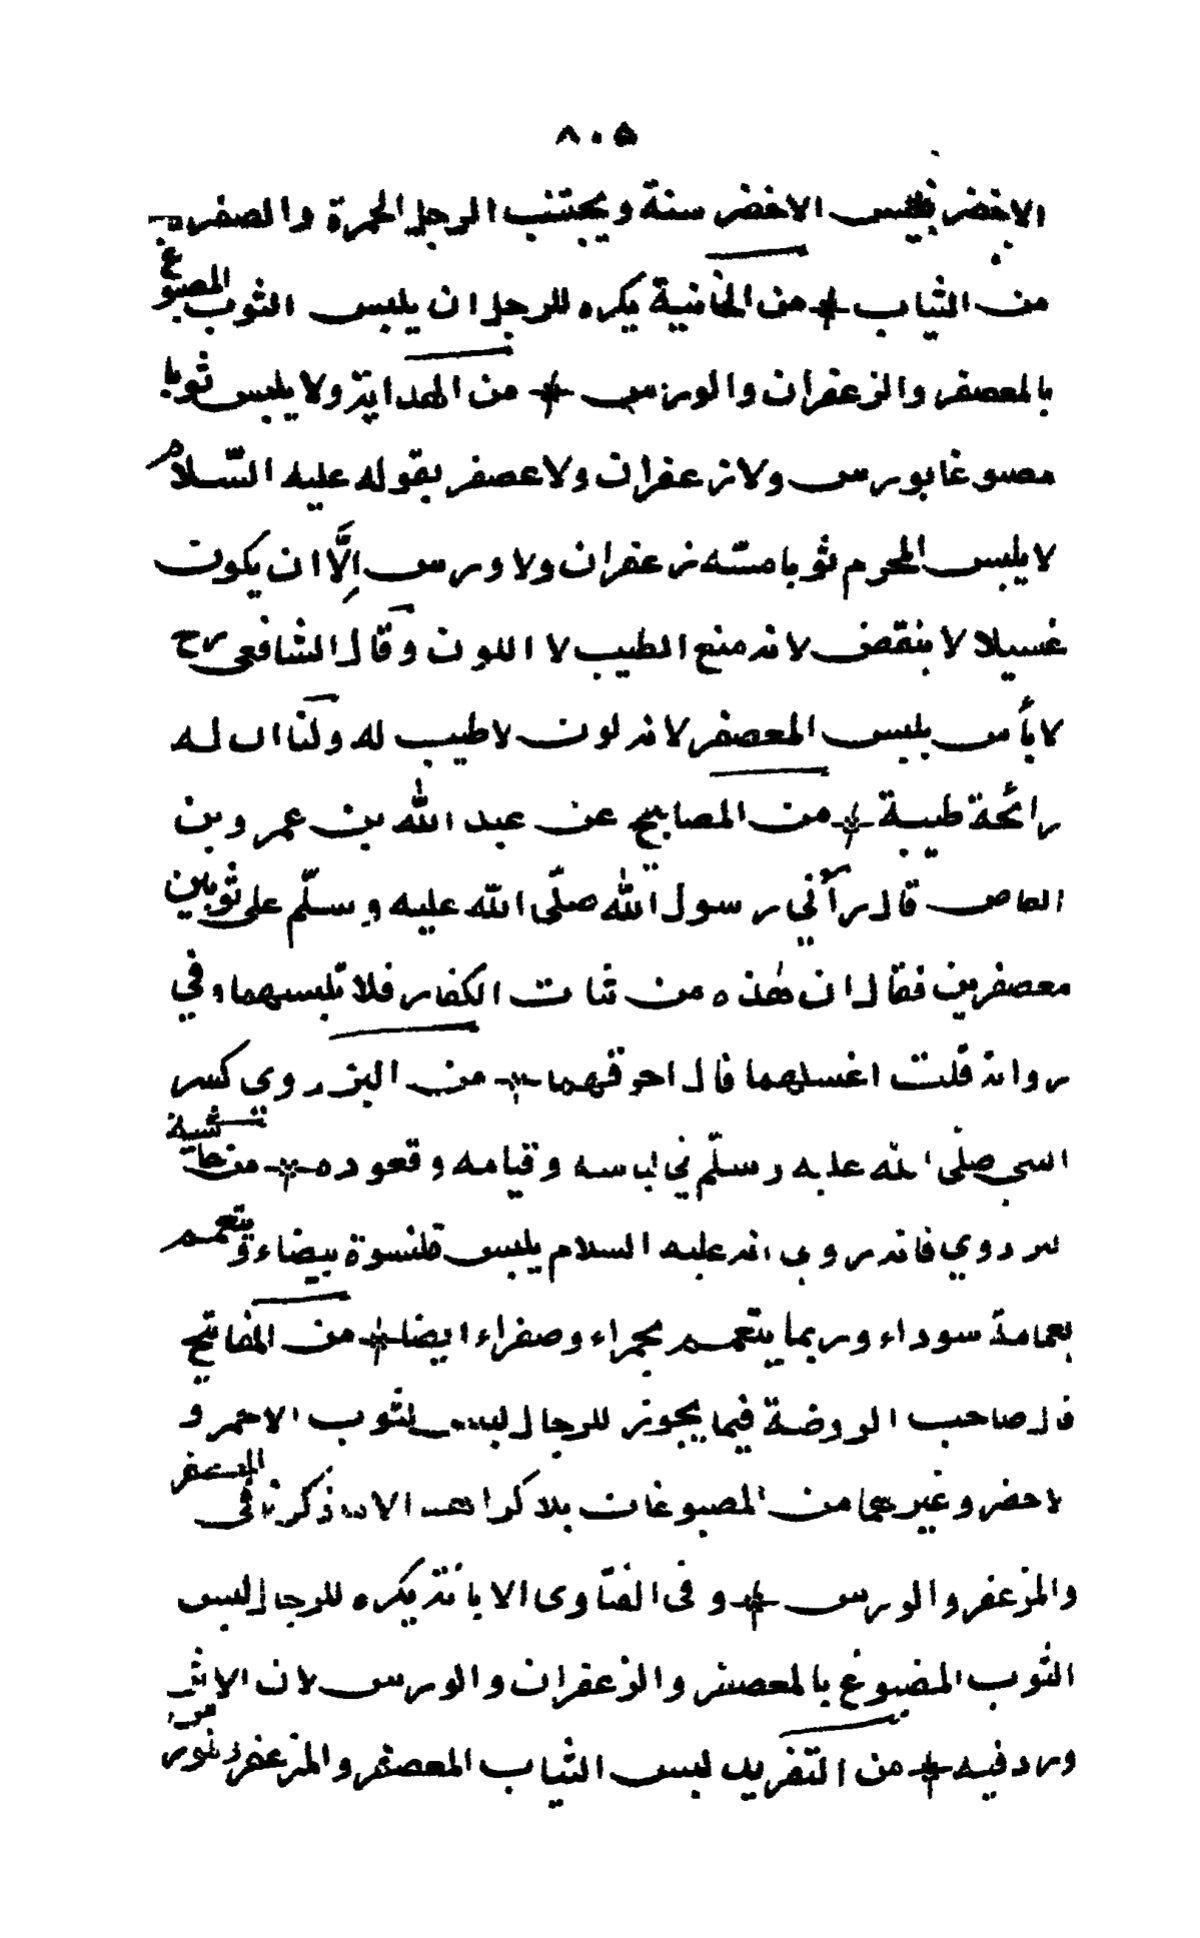 ٨٠٥
الاخضر فلبس الاخضر سنة ويجتنب الرجل الحمرة والصفرة
من الثياب من الخانية يكره للرجل ان يلبس الثوب المصبوغ
بالمعصفر والزعفران والورس من الهداية ولا يلبس ثوبا
مصبوغا بورس ولا زعفران ولا عصفر بقوله عليه السّلام
لا يلبس المحرم ثوبا مسّه زعفران ولا ورس إلّا ان يكون
غسيلا لا ينقض لانه منع الطيب لا اللون وقال الشافعى رح
لا بأس بلبس المعصفر لانه لون لا طيب له ولنا ان له
رائحة طيبة من المصابيح عن عبد الله بن عمرو بن
العاص قال رآني رسول الله صلّى الله عليه وسلّم على ثوبين
معصفرين فقال ان هذه من ثياب الكفار فلا تلبسهما وفي
رواية قلت اغسلهما قال احرقهما من البزدوى كسر
النبي صلّى الله عليه وسلّم في لباسه وقيامه وقعوده من حاشية
البزدوي فانه روي انه عليه السلام يلبس قلنسوة بيضاء ويتعمم
بعمامة سوداء وربما يتعمم بحمراء وصفراء ايضا من المفاتيح
قال صاحب الروضة فيما يجوز للرجال لبس الثوب الاحمر و
الاخضر وغيرهما من المصبوغات بلا كراهة الا ما ذكرنا فى المعصفر
والمزعفر والورس وفى الفتاوى الابانة يكره للرجال لبس
الثوب المصبوغ بالمعصفر والزعفران والورس لان الاثر
ورد فيه من التفريد لبس الثياب المعصفر والمزعفر